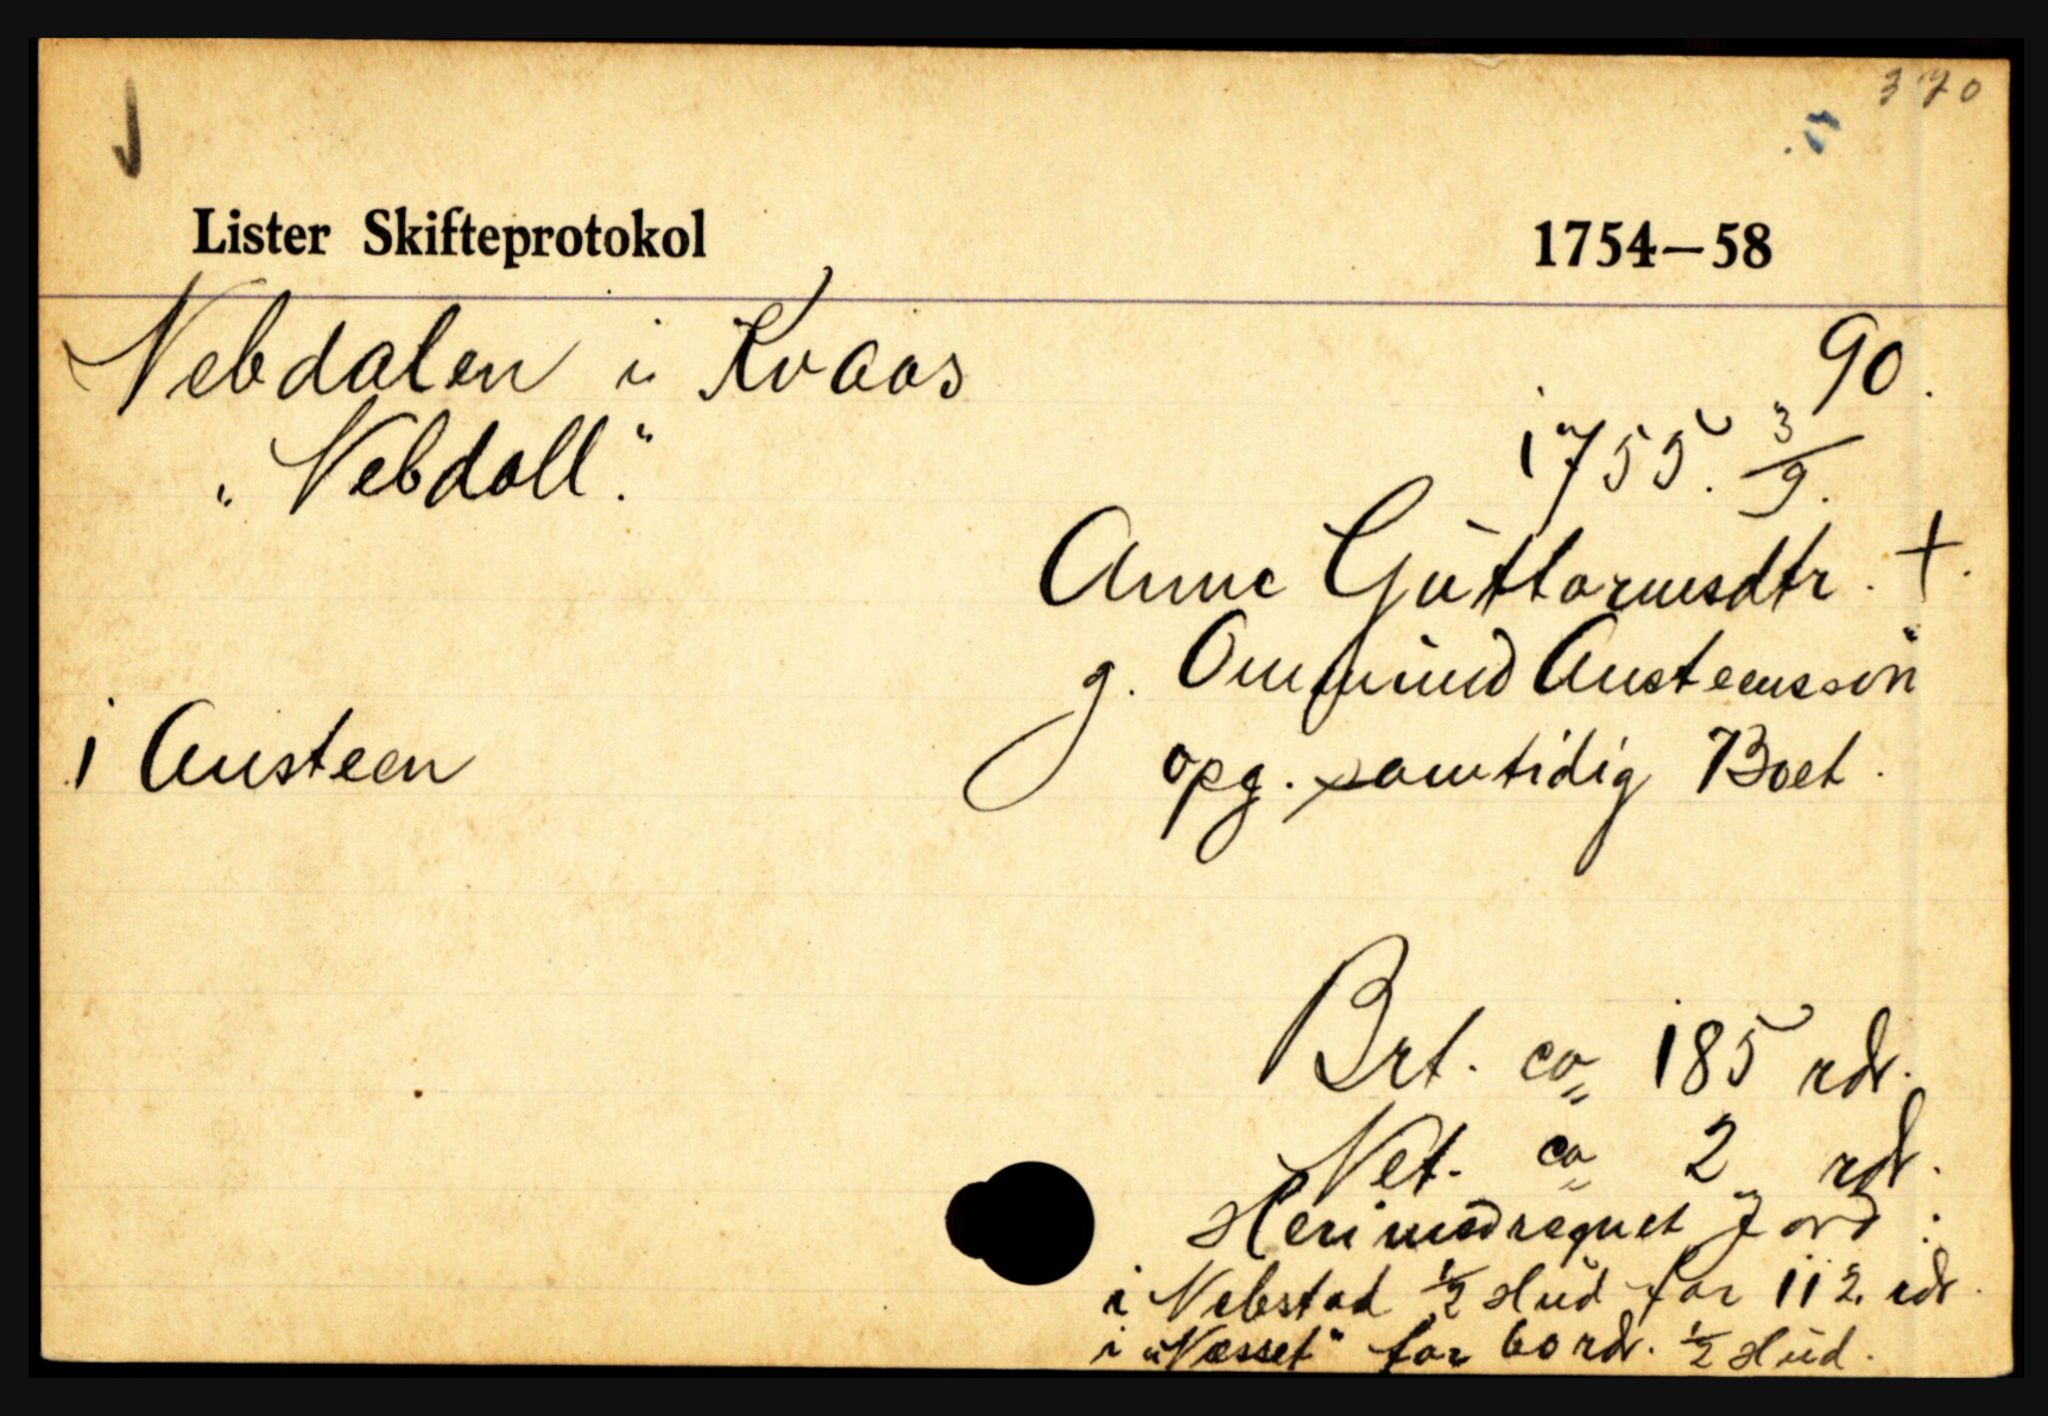 370
Lister Skifteprotokol 1754—58
Nebdalen i Kvaas 90.
"Nebdall". 1755. 3/9.
Anne Guttormsdtr. +.
g. Ommund Austeensson
i Austeen
opg. samtidig Boet.
Brt. ca 185 rdr.
Net. ca 2 rdr.
Heri medregnet Jord:
i Nebstad 1/2 Hud for 112 rdr.
i "Næsset" for 60 rdr. 1/2 Hud.